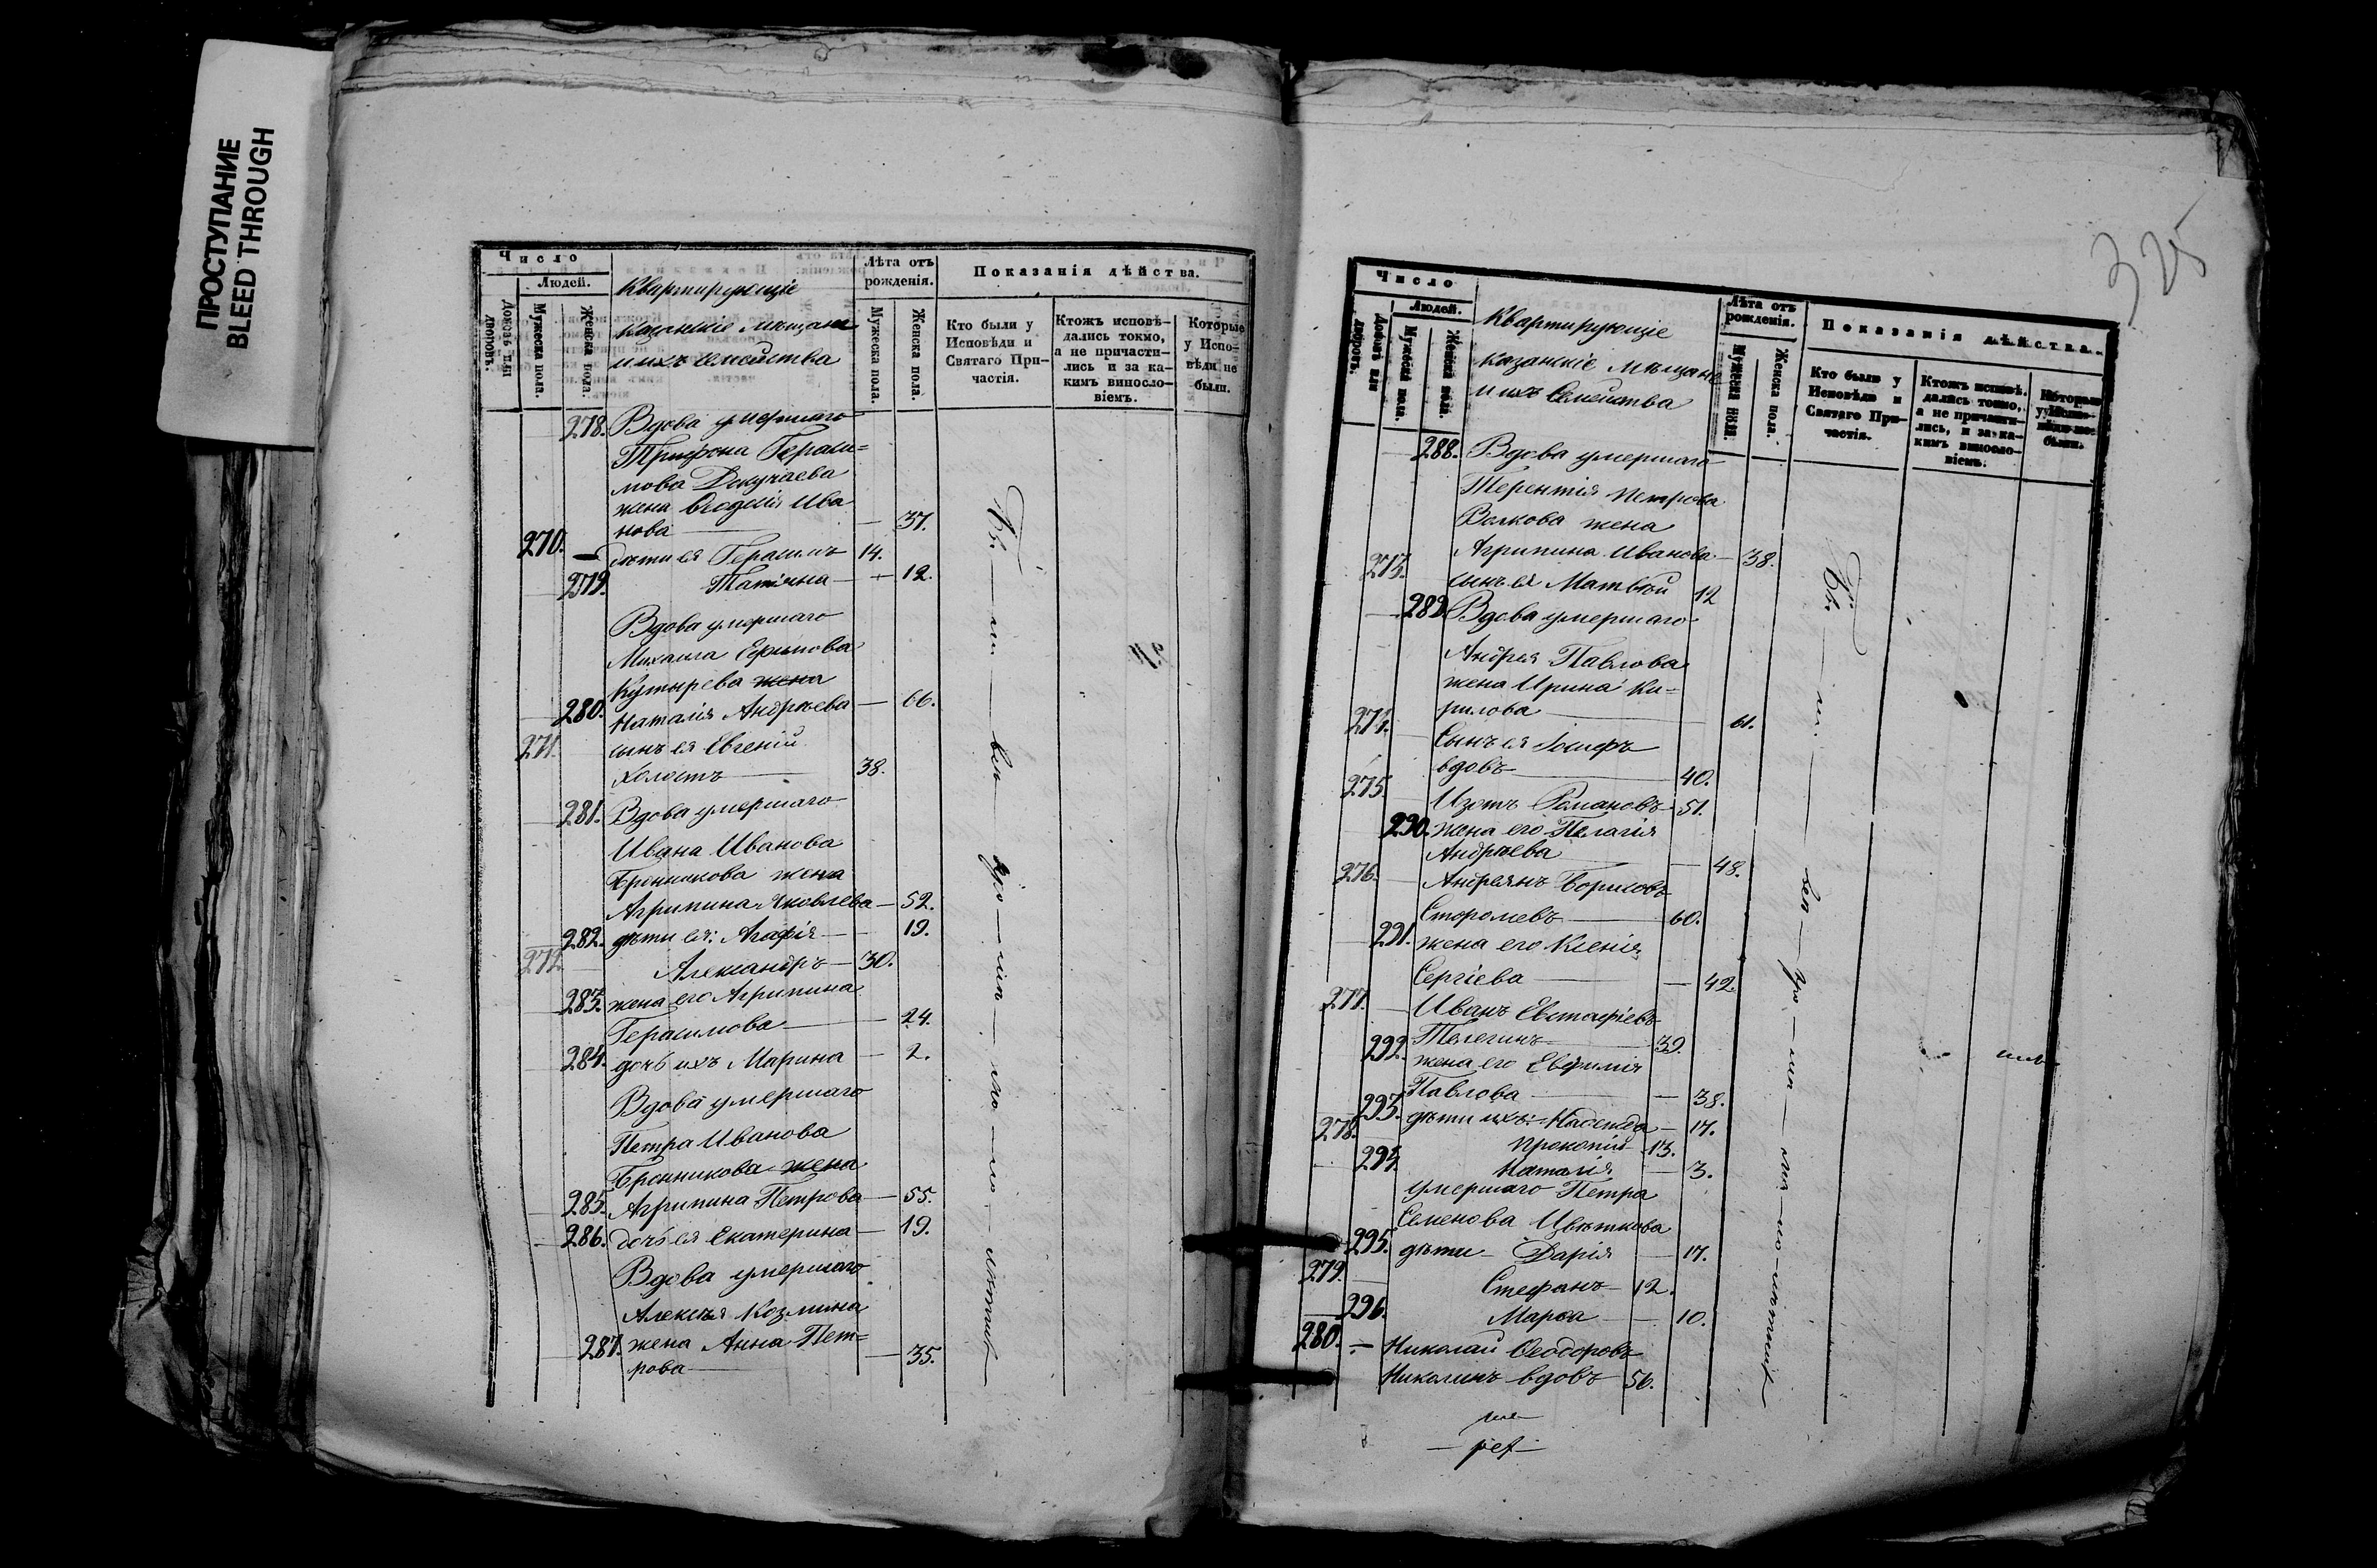 ПРОСТУПАНИЕ
BLEED THROUGH
Число
Людей.
Домовъ или дворовъ.
Мужеска пола.
Женска пола.
Квартирующіе
казанскіе мѣщане
и ихъ семейства
Лѣта отъ рожденія.
Мужеска пола.
Женска пола.
Показанія дѣйства.
Кто были у Исповѣди и Святаго Причастія.
Ктожъ исповѣдались токмо, а не причастились и за какимъ винословіемъ.
Которые у Исповѣди не были.
278. Вдова умершаго
Трифона Гераси=
мова Докучаева
жена Ѳеодосія Ива
нова — 37.
270. — дѣти ея Герасимъ 14.
279. Татіана — 12.
Вдова умершаго
Михаила Ефимова
Кутырева жена
280. Наталія Андреева — 66.
271. сынъ ея Евгеній
холостъ — 38.
281. Вдова умершаго
Ивана Иванова
Бронникова жена
Агрипина Яковлева — 52.
282. дѣти ея: Агафія — 19.
272. Александръ — 30.
283. жена его Агрипина
Герасимова — 24.
284. дочь ихъ Марина — 2.
Вдова умершаго
Петра Иванова
Бронникова жена
285. Агрипина Петрова — 55.
286. дочь ея Екатерина — 19.
Вдова умершаго
Алексѣя Козмина
287. жена Анна Пет=
рова — 35.
325
Число
Людей.
Домовъ или дворовъ.
Мужеска пола.
Женска пола.
Квартирующіе
казанскіе мѣщане
и ихъ семейства
Лѣта отъ рожденія.
Мужеска пола.
Женска пола.
Показанія дѣйства.
Кто были у Исповѣди и Святаго Причастія.
Ктожъ исповѣдались токмо, а не причастились, и за какимъ винословіемъ.
Которые у Исповѣди не были.
288. Вдова умершаго
Терентія Петрова
Волкова жена
Агрипина Иванова — 38.
273. сынъ ея Матвѣй 12
289. Вдова умершаго
Андрея Павлова
жена Ирина Ки=
рилова — 61.
274. Сынъ ея Іосифъ
вдовъ — 40.
275. Изотъ Романовъ — 51.
290. жена его Пелагія
Андреева — 48.
276. Андреянъ Борисовъ
60.
291. жена его Ксенія
Сергіева — 42.
277. Иванъ Евстафіевъ
Телегинъ — 39.
292. жена его Евфимія
Павлова — 38.
293. дѣти ихъ: Надежда — 17.
278. Прокопій — 13.
294. Наталія — 3.
умершаго Петра
Семенова Цвѣткова
295. дѣти — Дарія — 17.
279. Стефанъ — 12.
296. Марѳа — 10.
280. — Николай Ѳеодоровъ
вдовъ 56.